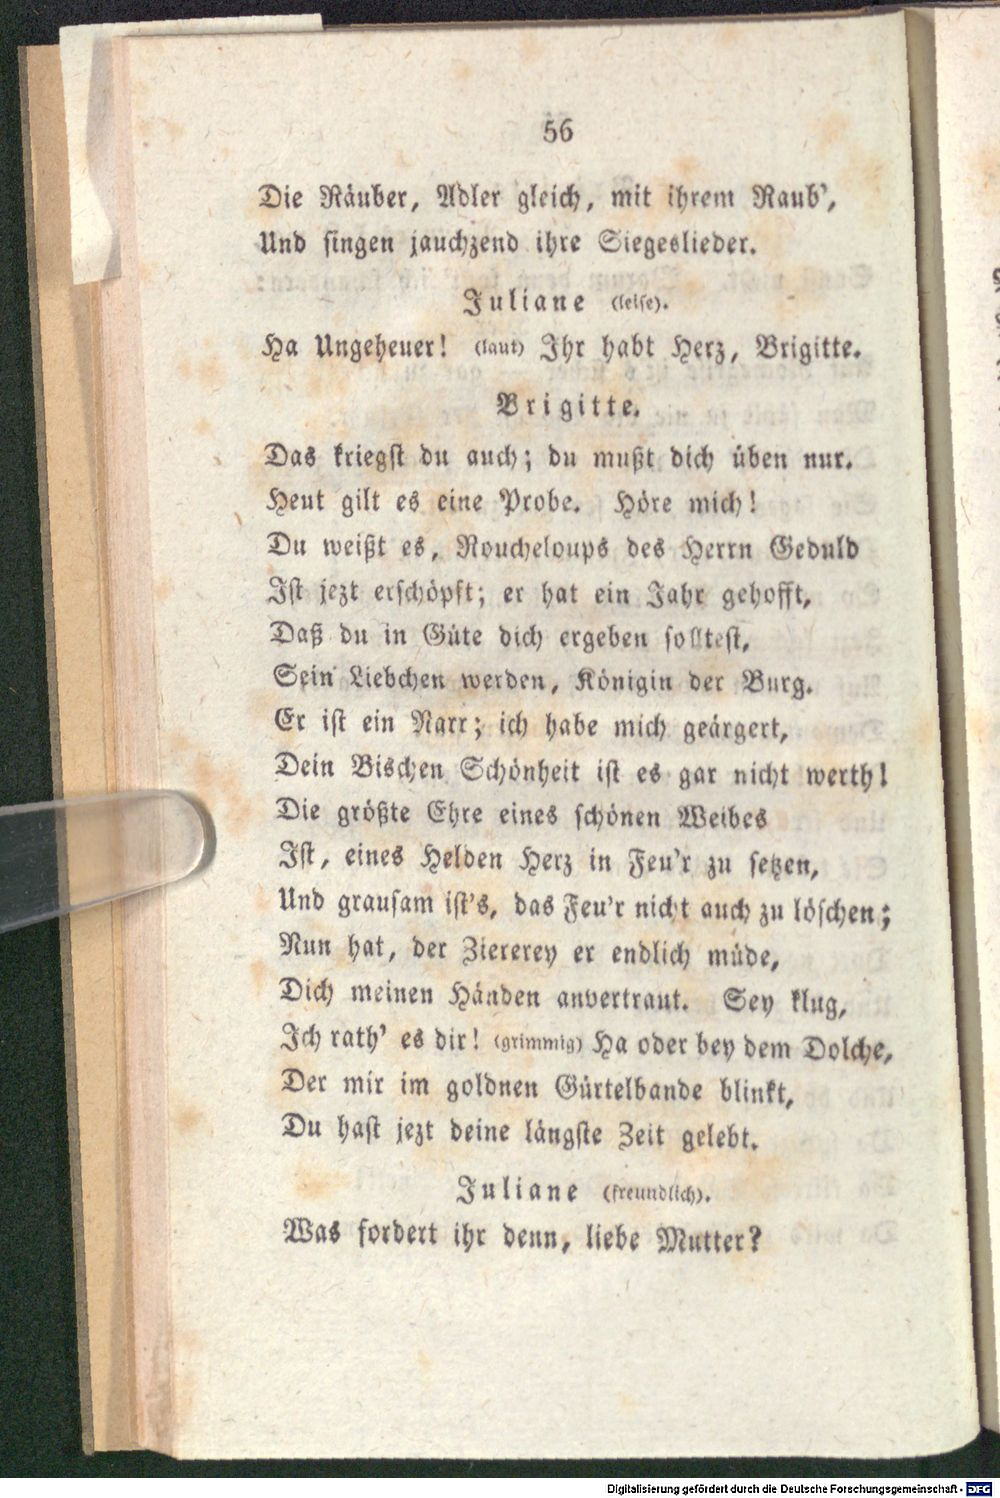 56
Die Räuber, Adler gleich, mit ihrem Raub’,
Und singen jauchzend ihre Siegeslieder.
Juliane (leise).
Ha Ungeheuer! (laut) Ihr habt Herz, Brigitte.
Brigitte.
Das kriegst du auch; du mußt dich üben nur.
Heut gilt es eine Probe. Höre mich!
Du weißt es, Roucheloups des Herrn Geduld
Ist jezt erschöpft; er hat ein Jahr gehofft,
Daß du in Güte dich ergeben solltest,
Sein Liebchen werden, Königin der Burg.
Er ist ein Narr; ich habe mich geärgert,
Dein Bischen Schönheit ist es gar nicht werth!
Die größte Ehre eines schönen Weibes
Ist, eines Helden Herz in Feu’r zu setzen,
Und grausam ist’s, das Feu’r nicht auch zu löschen;
Nun hat, der Ziererey er endlich müde,
Dich meinen Händen anvertraut. Sey klug,
Ich rath’ es dir! (grimmig) Ha oder bey dem Dolche,
Der mir im goldnen Gürtelbande blinkt,
Du hast jezt deine längste Zeit gelebt.
Juliane (freundlich).
Was fordert ihr denn, liebe Mutter?
Digitalisierung gefördert durch die Deutsche Forschungsgemeinschaft - DFG